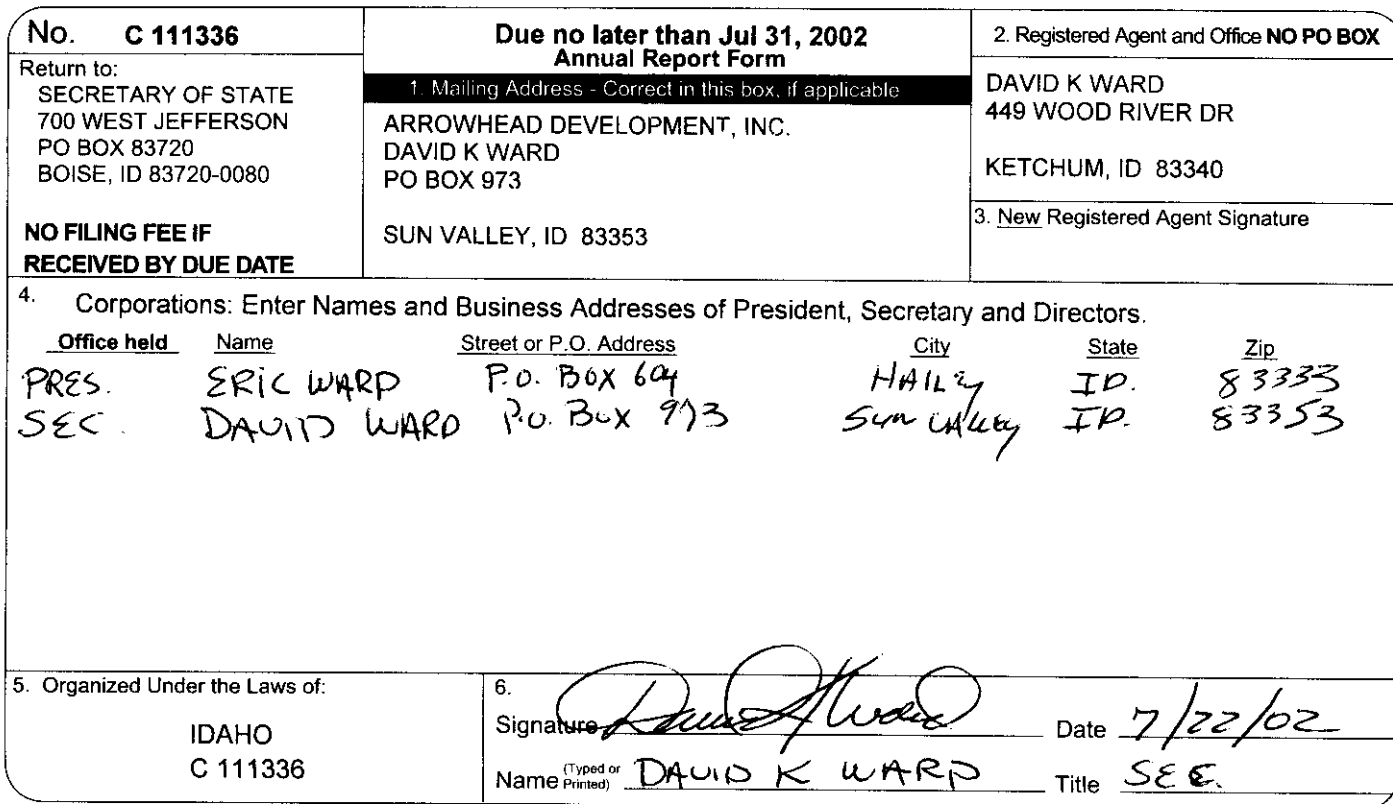 No. C 111336
Return to:
SECRETARY OF STATE
700 WEST JEFFERSON
PO BOX 83720
BOISE, ID 83720-0080
NO FILING FEE IF
RECEIVED BY DUE DATE
Due no later than Jul 31, 2002
Annual Report Form
1. Mailing Address - Correct in this box, if applicable
ARROWHEAD DEVELOPMENT, INC.
DAVID K WARD
PO BOX 973
SUN VALLEY, ID 83353
2. Registered Agent and Office NO PO BOX
DAVID K WARD
449 WOOD RIVER DR
KETCHUM, ID 83340
3. New Registered Agent Signature
4. Corporations: Enter Names and Business Addresses of President, Secretary and Directors.
Office held Name Street or P.O. Address City State Zip
PRES. ERIC WARD P.O. BOX 604 HAILEY ID. 83333
SEC. DAVID WARD P.O. BOX 973 SUN VALLEY ID. 83353
5. Organized Under the Laws of:
IDAHO
C 111336
6.
Signature David K Ward Date 7/22/02
Name (Typed or Printed) DAVID K WARD Title SEC.